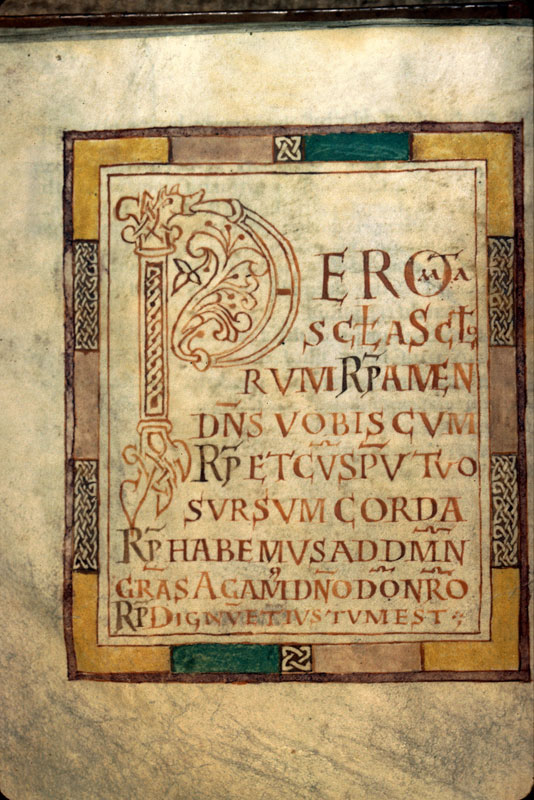 PER OMĪA
SCŁA SCŁO
RUM RP̄ AMEN
DN̄S VOBISCUM
RP̄ ET CŪ SPŪ TUO
SVRSUM CORDA
RP̄ HABEMUS AD DM̄N
GRAS AGAM᾽ DN̄O DŌ NR̄O
RP̄ DIGNŪ ET IUSTUM EST